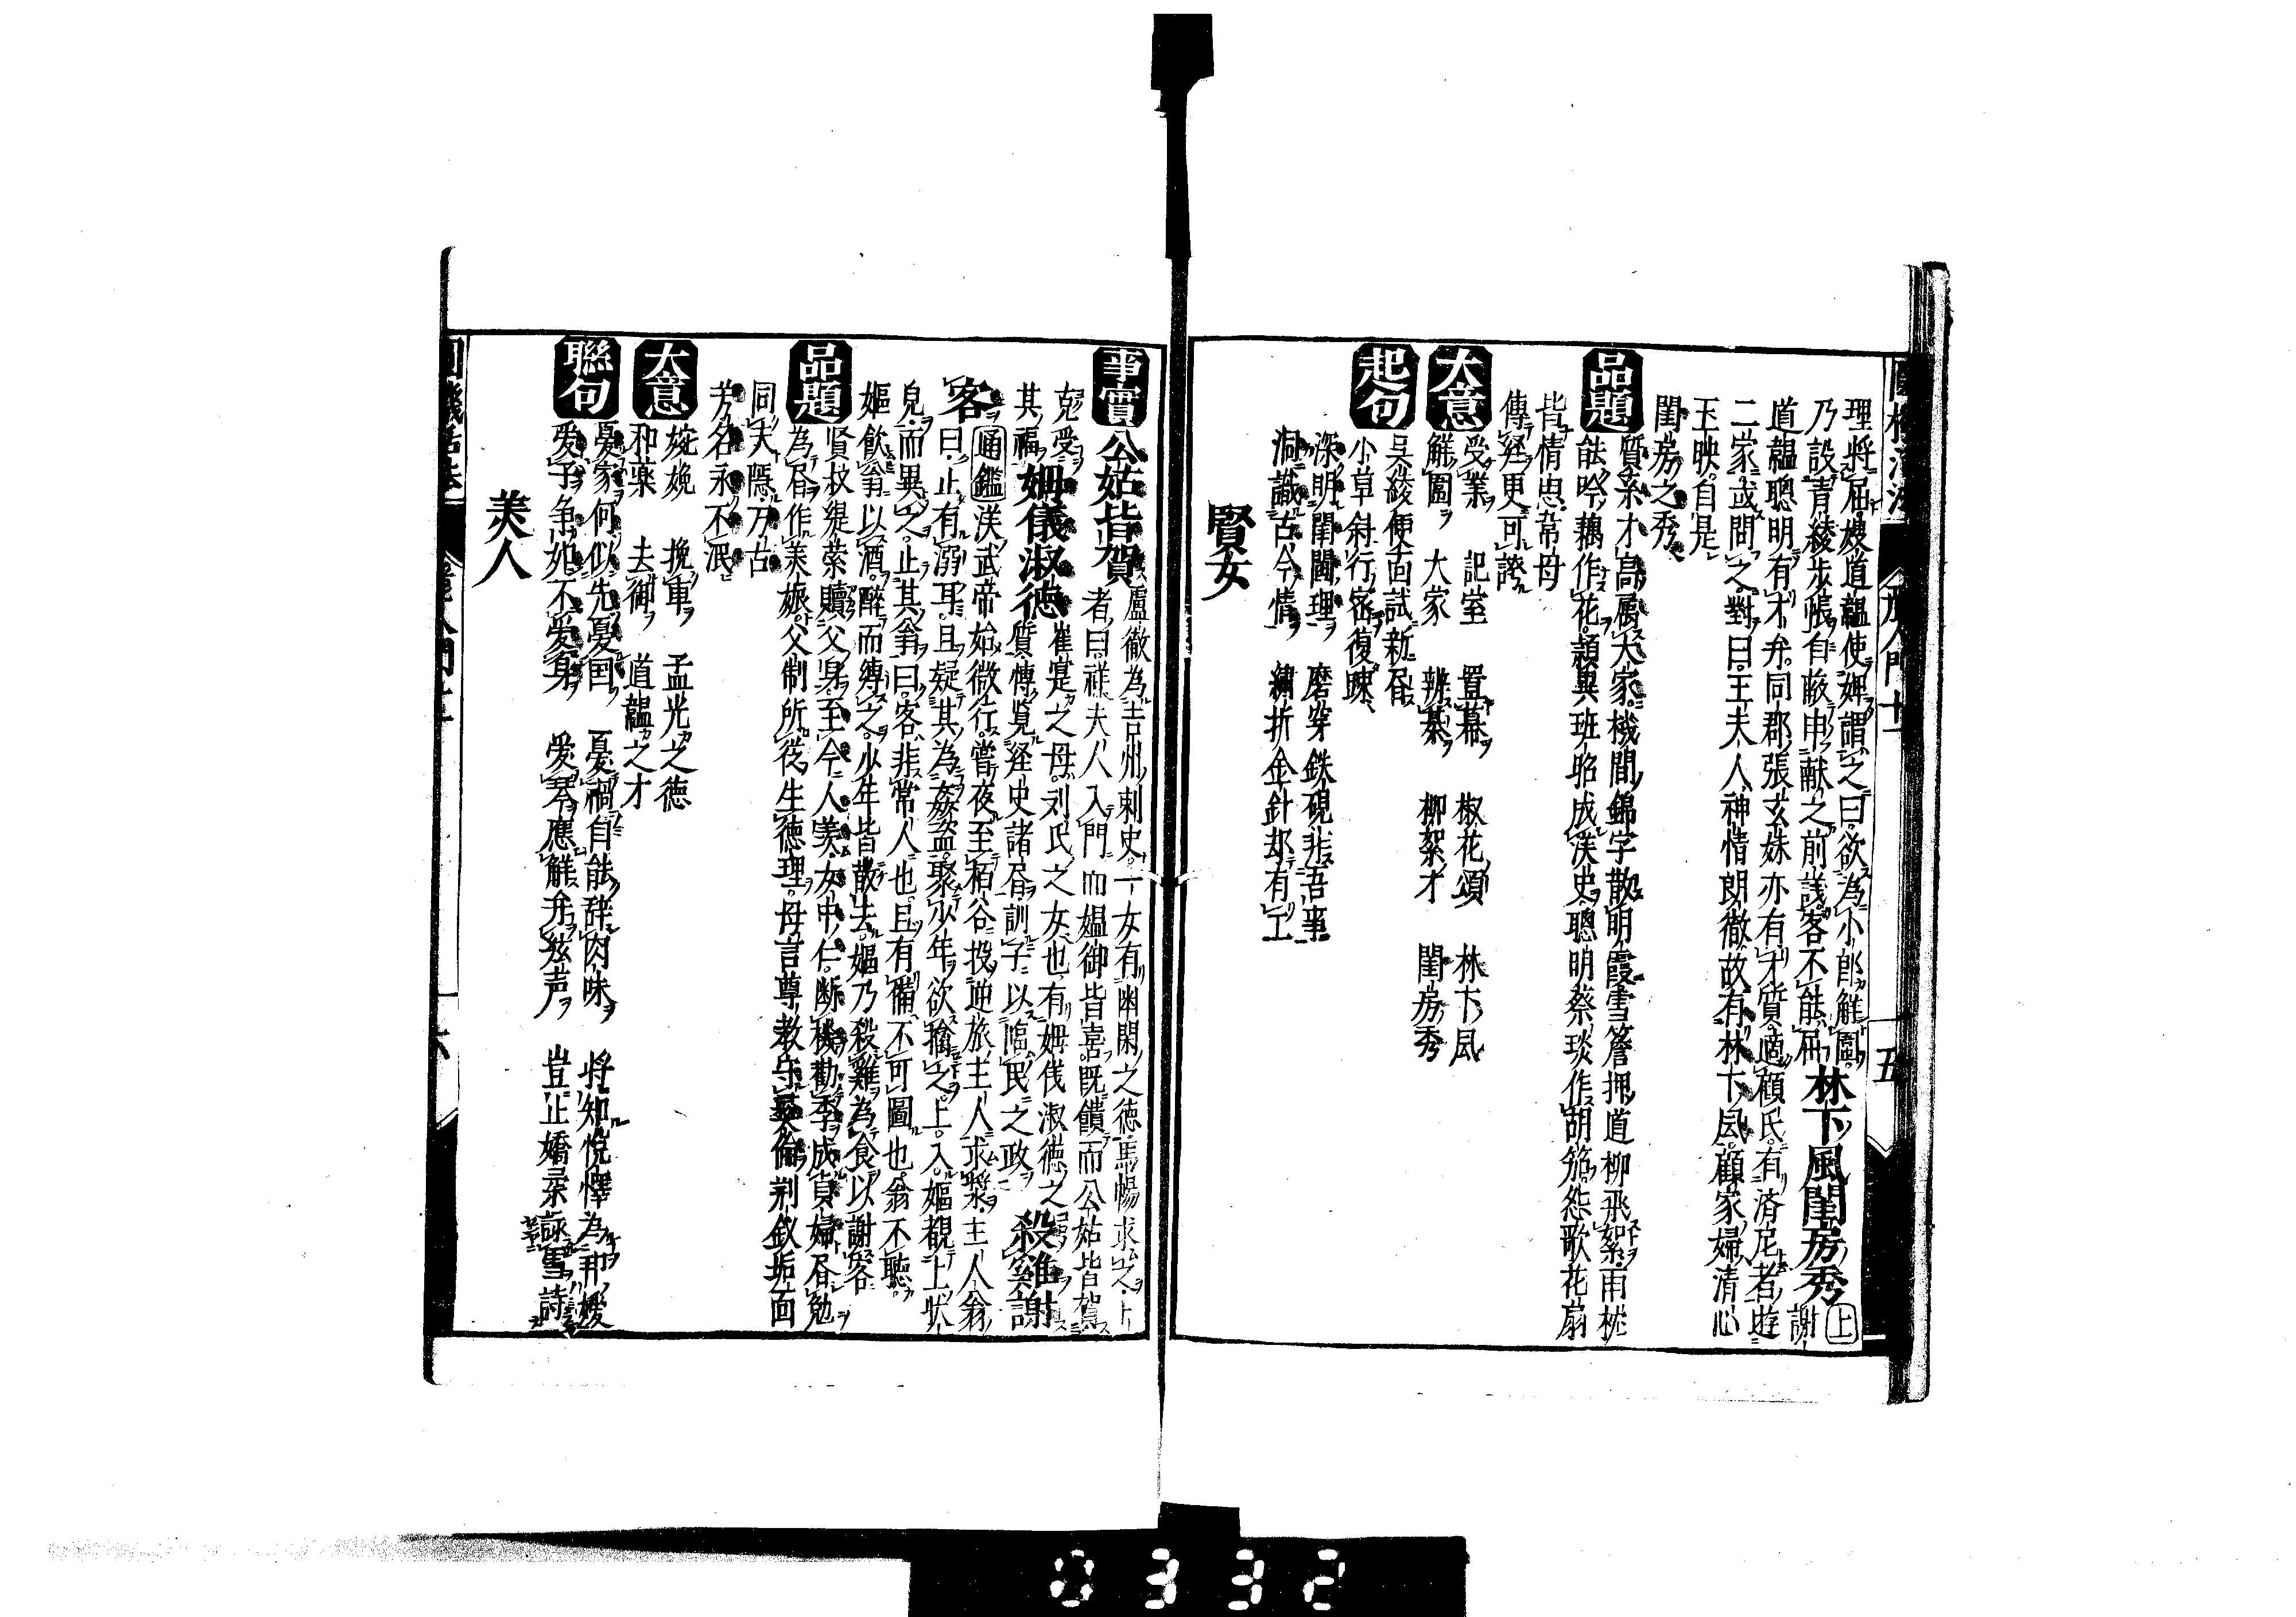 理將屈嫂道韞使婢謂之曰欲為小郎解圍
乃設青綾步帳自蔽申献之前議客不能屈林下風閨房秀上謝
道韞聰明有才弁同郡張玄妹亦有才質適顧氏有済尼者遊
二家或問之對曰王夫人神情朗徹故有林下風顧家婦清心
玉映自是
閨房之秀
品題
質素才高属大家機間錦字散明霞雪簷押道柳飛絮雨桃
皆情忠常母
能吟藕作花頴異班昭成漢史聰明蔡琰作胡笳怨歌花扇
傳経更可誇
大意
受業 記室 置幕 椒花頌 林下風
解圍 大家 辨棊 柳絮才 閨房秀
起句
吳綾便面試新昏
小草斜行密復踈
深明閨閫理 磨穿鉄硯非吾事
洞識古今情 繍折金針却有工
賢女
事實
公姑皆賀盧徹為吉州刺史一女有幽閑之徳馬暢求之卜
者曰祥夫人入門而媼御皆喜既饋而公姑皆賀
克受
其福姆儀淑徳崔寔之母刘氏之女也有姆儀淑徳之
質博覧経史諸昏訓子以臨民之政殺雞謝
客通鑑漢武帝始微行嘗夜至栢谷投逆旅主人求漿主人翁
曰止有溺耳且疑其為姦盗聚少年欲擒之上入嫗覩上状
皃而異之止其翁曰客非常人也且有備不可圖也翁不聴
嫗飲翁以酒醉而縛之少年皆散去嫗乃殺雞為食以謝客
品題
賢枚緹縈贖父身至今人美女中仁断機勸季成貞婦昏勉
為昏作美娠父制所従生徳理母言尊教守彝倫荊釵垢面
同夫隠万古
芳名永不泯
大意
婉娩 挽車 孟光之徳
和薬 去御 道韞之才
聯句
憂家何似先憂国 憂禍自能辞肉味 将知悦懌為邦媛
爱子争如不爱身 爱琴應解弁絃声 豈止嬌柔詠雪詩
美人
0332